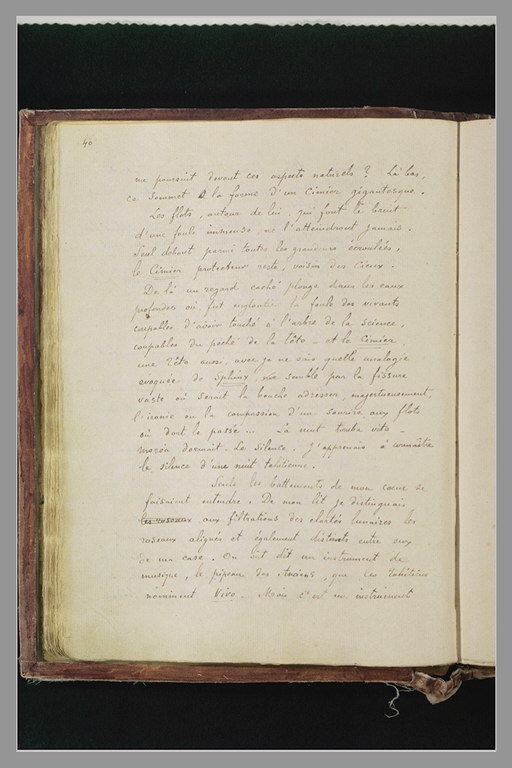 40
me poursuit devant ces aspects naturels ? Là bas,
ce sommet a la forme d'un Cimier gigantesque.
Les flots, autour de lui, qui font le bruit
d'une foule immense, ne l'atteindront jamais.
Seul debout parmi toutes les grandeurs écroulées,
le Cimier protecteur reste, voisin des Cieux.
De là un regard caché plonge dans les eaux
profondes où fut engloutie la foule des vivants
coupables d'avoir touché à l'arbre de la science,
coupables du péché de la tête – et le Cimier
une tête aussi, avec je ne sais quelle analogie
evoquée de Sphinx, me semble par la fissure
vaste où serait la bouche adresser, majestueusement,
l'ironie ou la compassion d'un sourire aux flots
où dort le passé ... La nuit tomba vite –
Moréa dormait. Le silence. J'apprenais à connaître
le silence d'une nuit tahitienne.
Seuls les battements de mon cœur se
faisaient entendre. De mon lit je distinguais
les roseaux aux filtrations des clartés lunaires les
roseaux alignés et également distants entre eux
de ma case. On eut dit un instrument de
musique, le pipeau des Anciens, que les Tahitiens
nomment Vivo. Mais c'est un instrument